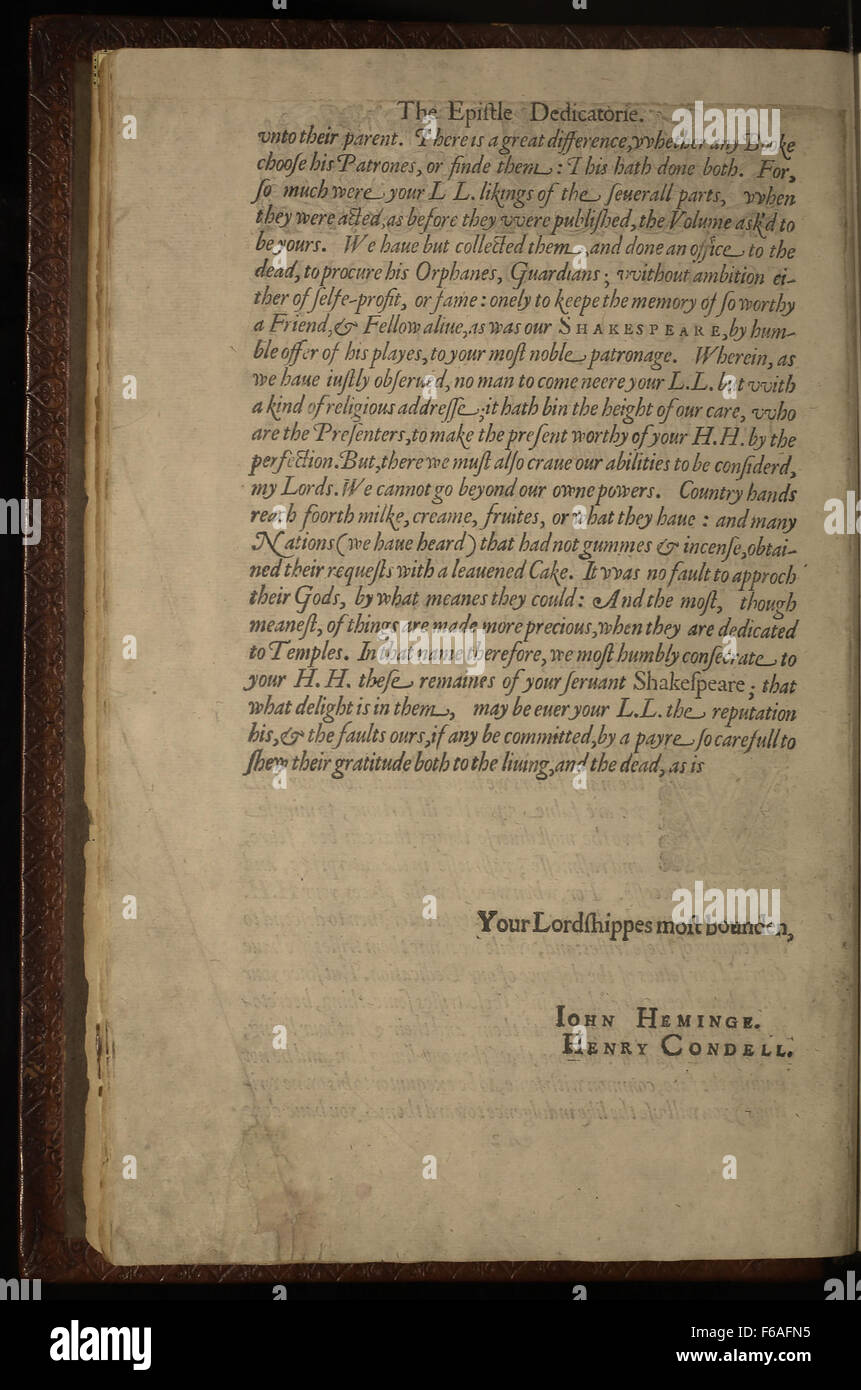 The Epiſtle Dedicatorie.
vnto their parent. There is a great difference, vvhether any Booke
chooſe his Patrones, or finde them: This hath done both. For,
ſo much were your L L. likings of the ſeuerall parts, vvhen
they were acted, as before they vvere publiſhed, the Volume ask'd to
be yours. We haue but collected them, and done an office to the
dead, to procure his Orphanes, Guardians; vvithout ambition ei-
ther of ſelfe-profit, or fame: onely to keepe the memory of ſo worthy
a Friend, & Fellow aliue, as was our SHAKESPEARE, by hum-
ble offer of his playes, to your moſt noble patronage. Wherein, as
we haue iuſtly obſerued, no man to come neere your L.L. but vvith
a kind of religious addreſſe; it hath bin the height of our care, vvho
are the Preſenters, to make the preſent worthy of your H.H. by the
perfection. But, there we muſt alſo craue our abilities to be conſiderd,
my Lords. We cannot go beyond our owne powers. Country hands
reach foorth milke, creame, fruites, or what they haue : and many
Nations (we haue heard) that had not gummes & incenſe, obtai-
ned their requeſts with a leauened Cake. It vvas no fault to approch
their Gods, by what meanes they could: And the moſt, though
meaneſt, of things are made more precious, when they are dedicated
to Temples. In that name therefore, we moſt humbly conſecrate to
your H. H. theſe remaines of your ſeruant Shakeſpeare; that
what delight is in them, may be euer your L.L. the reputation
his, & the faults ours, if any be committed, by a payre ſo carefull to
ſhew their gratitude both to the liuing, and the dead, as is
Your Lordſhippes moſt bounden,
IOHN HEMINGE.
HENRY CONDELL.
alamy
Image ID: F6AFN5
www.alamy.com